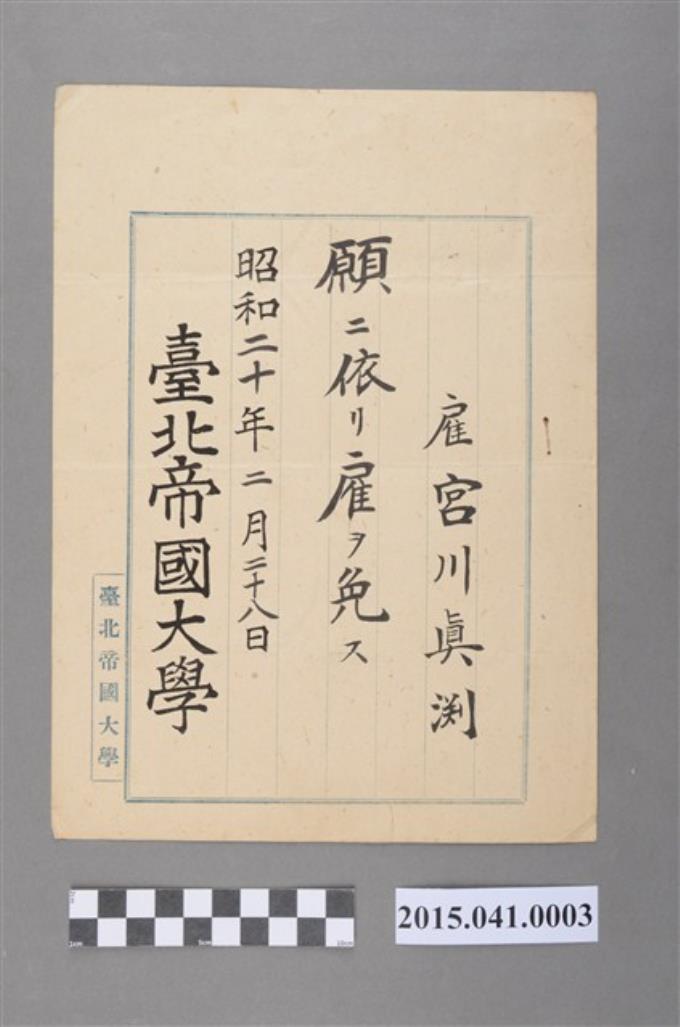 雇宮川眞渕
願ニ依リ雇ヲ免ス
昭和二十年二月二十八日
臺北帝國大學
臺北帝國大學
1cm 5cm 10cm
2015.041.0003